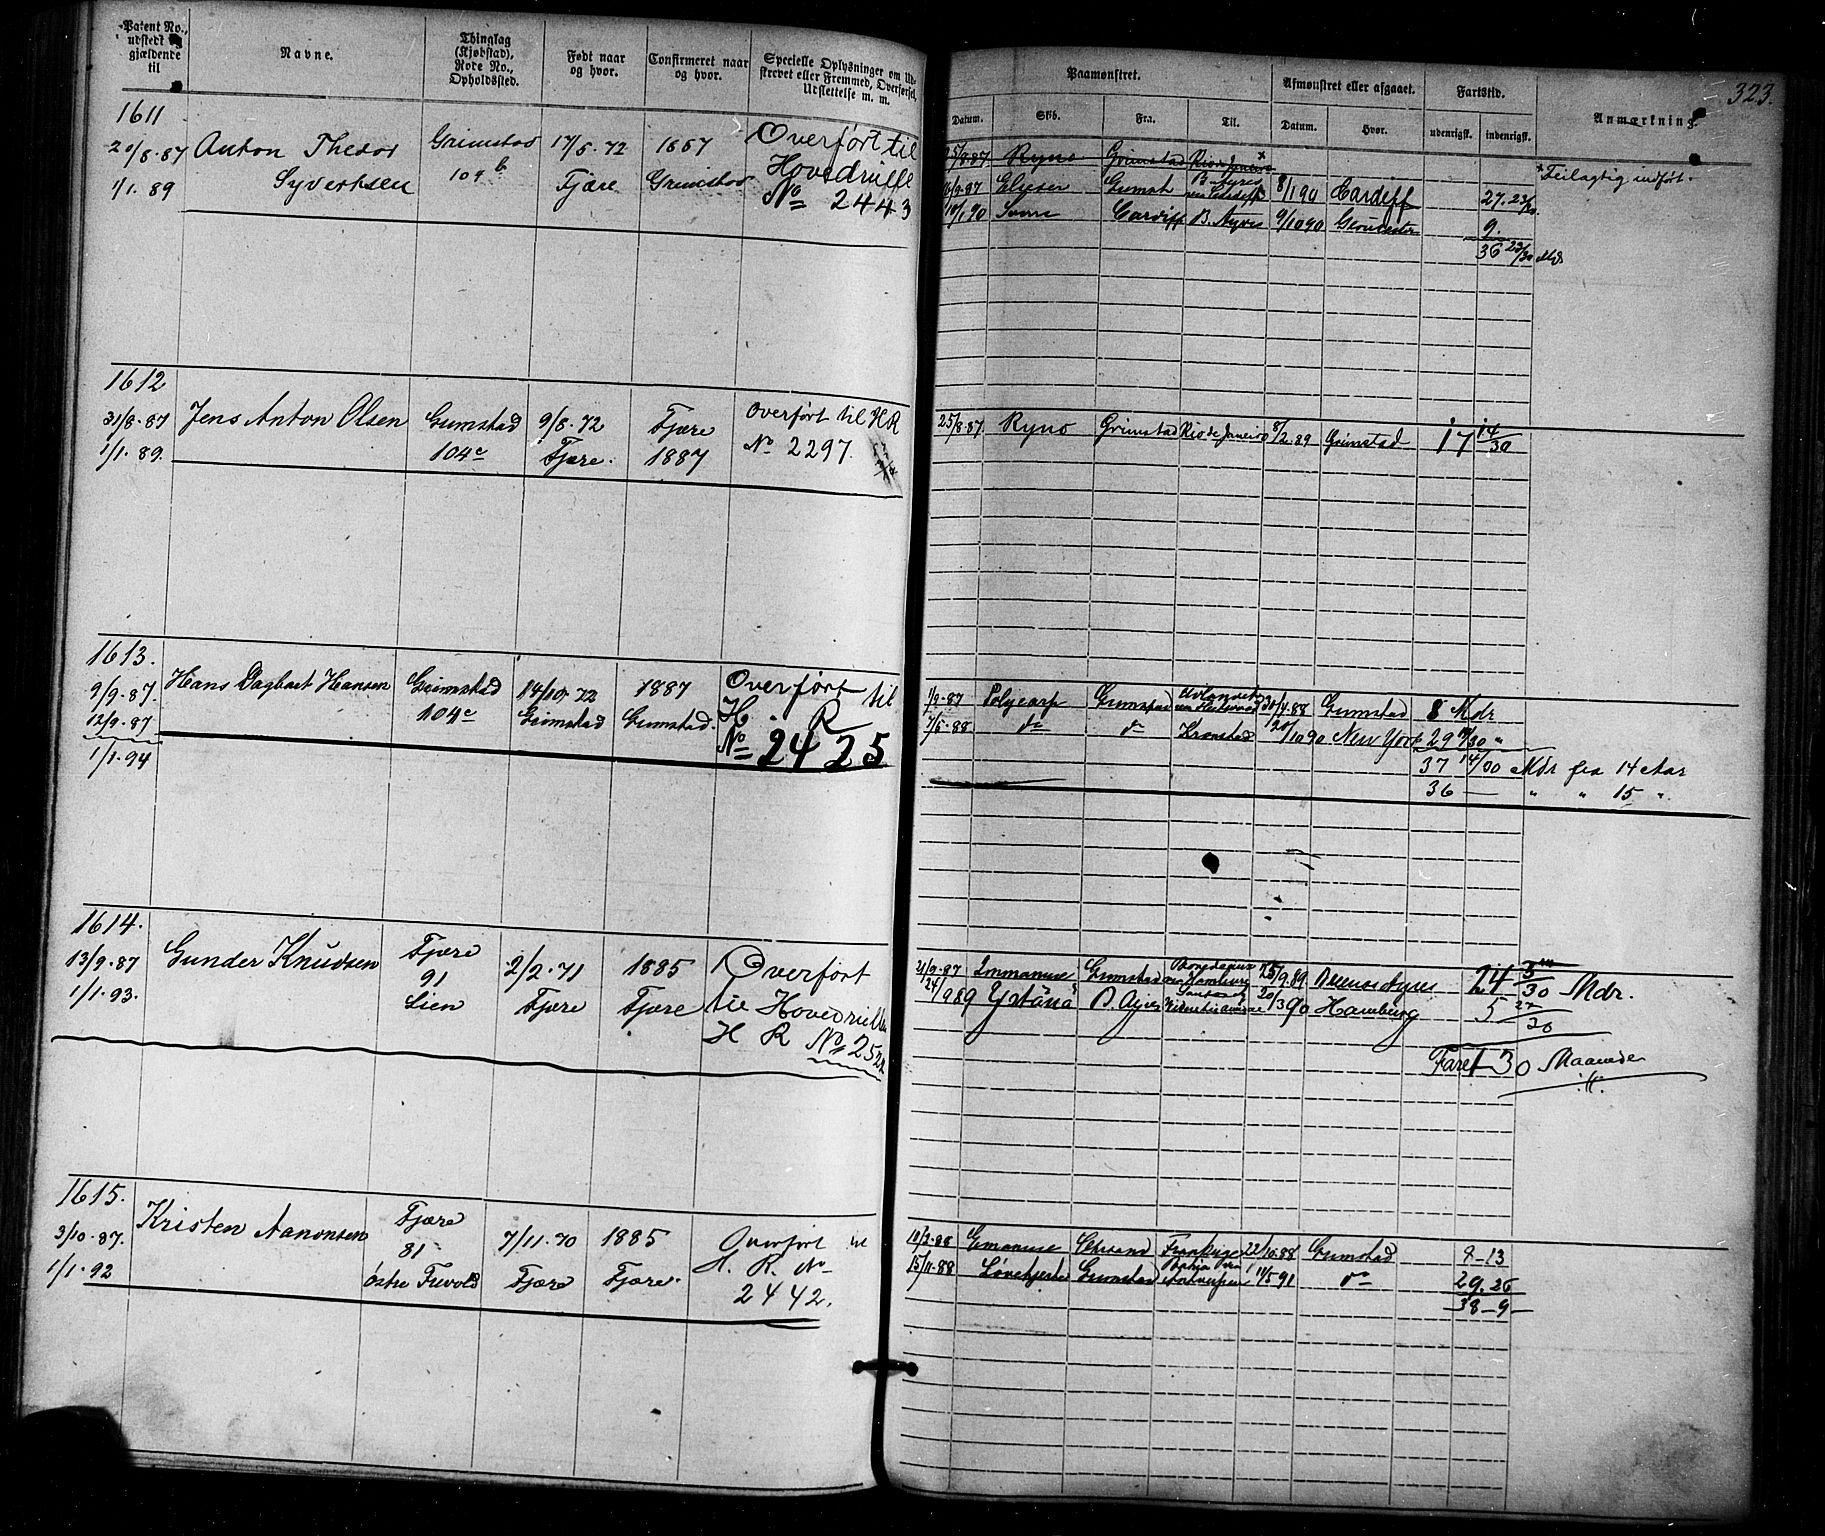 Patent No., udstedt og gjældende til
Navne.
Thinglag (Kjøbstad), Rode No., Opholdssted.
Født naar og hvor.
Confirmeret naar og hvor.
Specielle Oplysninger om Udskrevet eller Fremmed, Overførsel, Udslettelse m. m.
1611
20/8.87 Anton Thedor Grimstad 17/5.72 1887 Overført til
1/1.89 Syvertsen 104 b Fjære Grimstad Hovedrulle
No 2443
1612
31/8.87 Jens Anton Olsen Grimstad 9/8.72 Fjære Overført til HR
1/1.89. 104c Fjære. 1887 No 2297.
1613.
9/9.87. Hans Dagbart Hansen Grimstad 14/10.72 1887 Overført til
12/9.87 104c Grimstad Grimstad. H. R
1/1.94 No 2425
1614.
13/9.87 Gunder Knudsen Fjære 2/2.71 1885 Overført
1/1.93. 91 Fjære Fjære til Hovedrullen
Lien H R No 2522
1615.
3/10.87. Kristen Aanonsen Fjære 7/11.70 1885 Overført til
1/1.92 81 Fjære Fjære. H. R. No
østre 2442.
323.
Paamønstret.
Afmønstret eller afgaaet.
Fartstid.
Anmærkning.
Datum. Skib. Fra. Til. Datum. Hvor. udenrigsk. indenrigsk.
25/8.87 Ryno Grimstad Rio de Janeiro x
x Feilagtig indført.
Elieser Grimst B. Ayres 8/1 90 Cardiff 27. 23/30
10/1.90 Cardiff B. Ayres 9/10 90 Gloucester 9.
36 23/30 Mdr
25/8.87. Ryno Grimstad Rio de Janeiro 8/2.89 Grimstad 17 14/30
1/9.87 Polycarp Grimstad 30/4.88 Grimstad 8 Mdr
7/5.88 do do Kronstad 20/10 90 New York 29 14/30 "
37 14/30 Mdr fra 14 Aar
36 — " " 15 "
21/9.87 Immanuel Grimstad Bordeaux 25/9.89 Buenos Ayres 24 5/30 Mdr.
24/9 89 B. Ayres 20/3 90 Hamburg 5 27/30
Faret 30 Maaneder
10/2.88 Emanuel Chrsand 22/10.88 Grimstad 8-13
15/11.88 Grimstad Antwerpen 11/5 91 do 29.26
38-9-